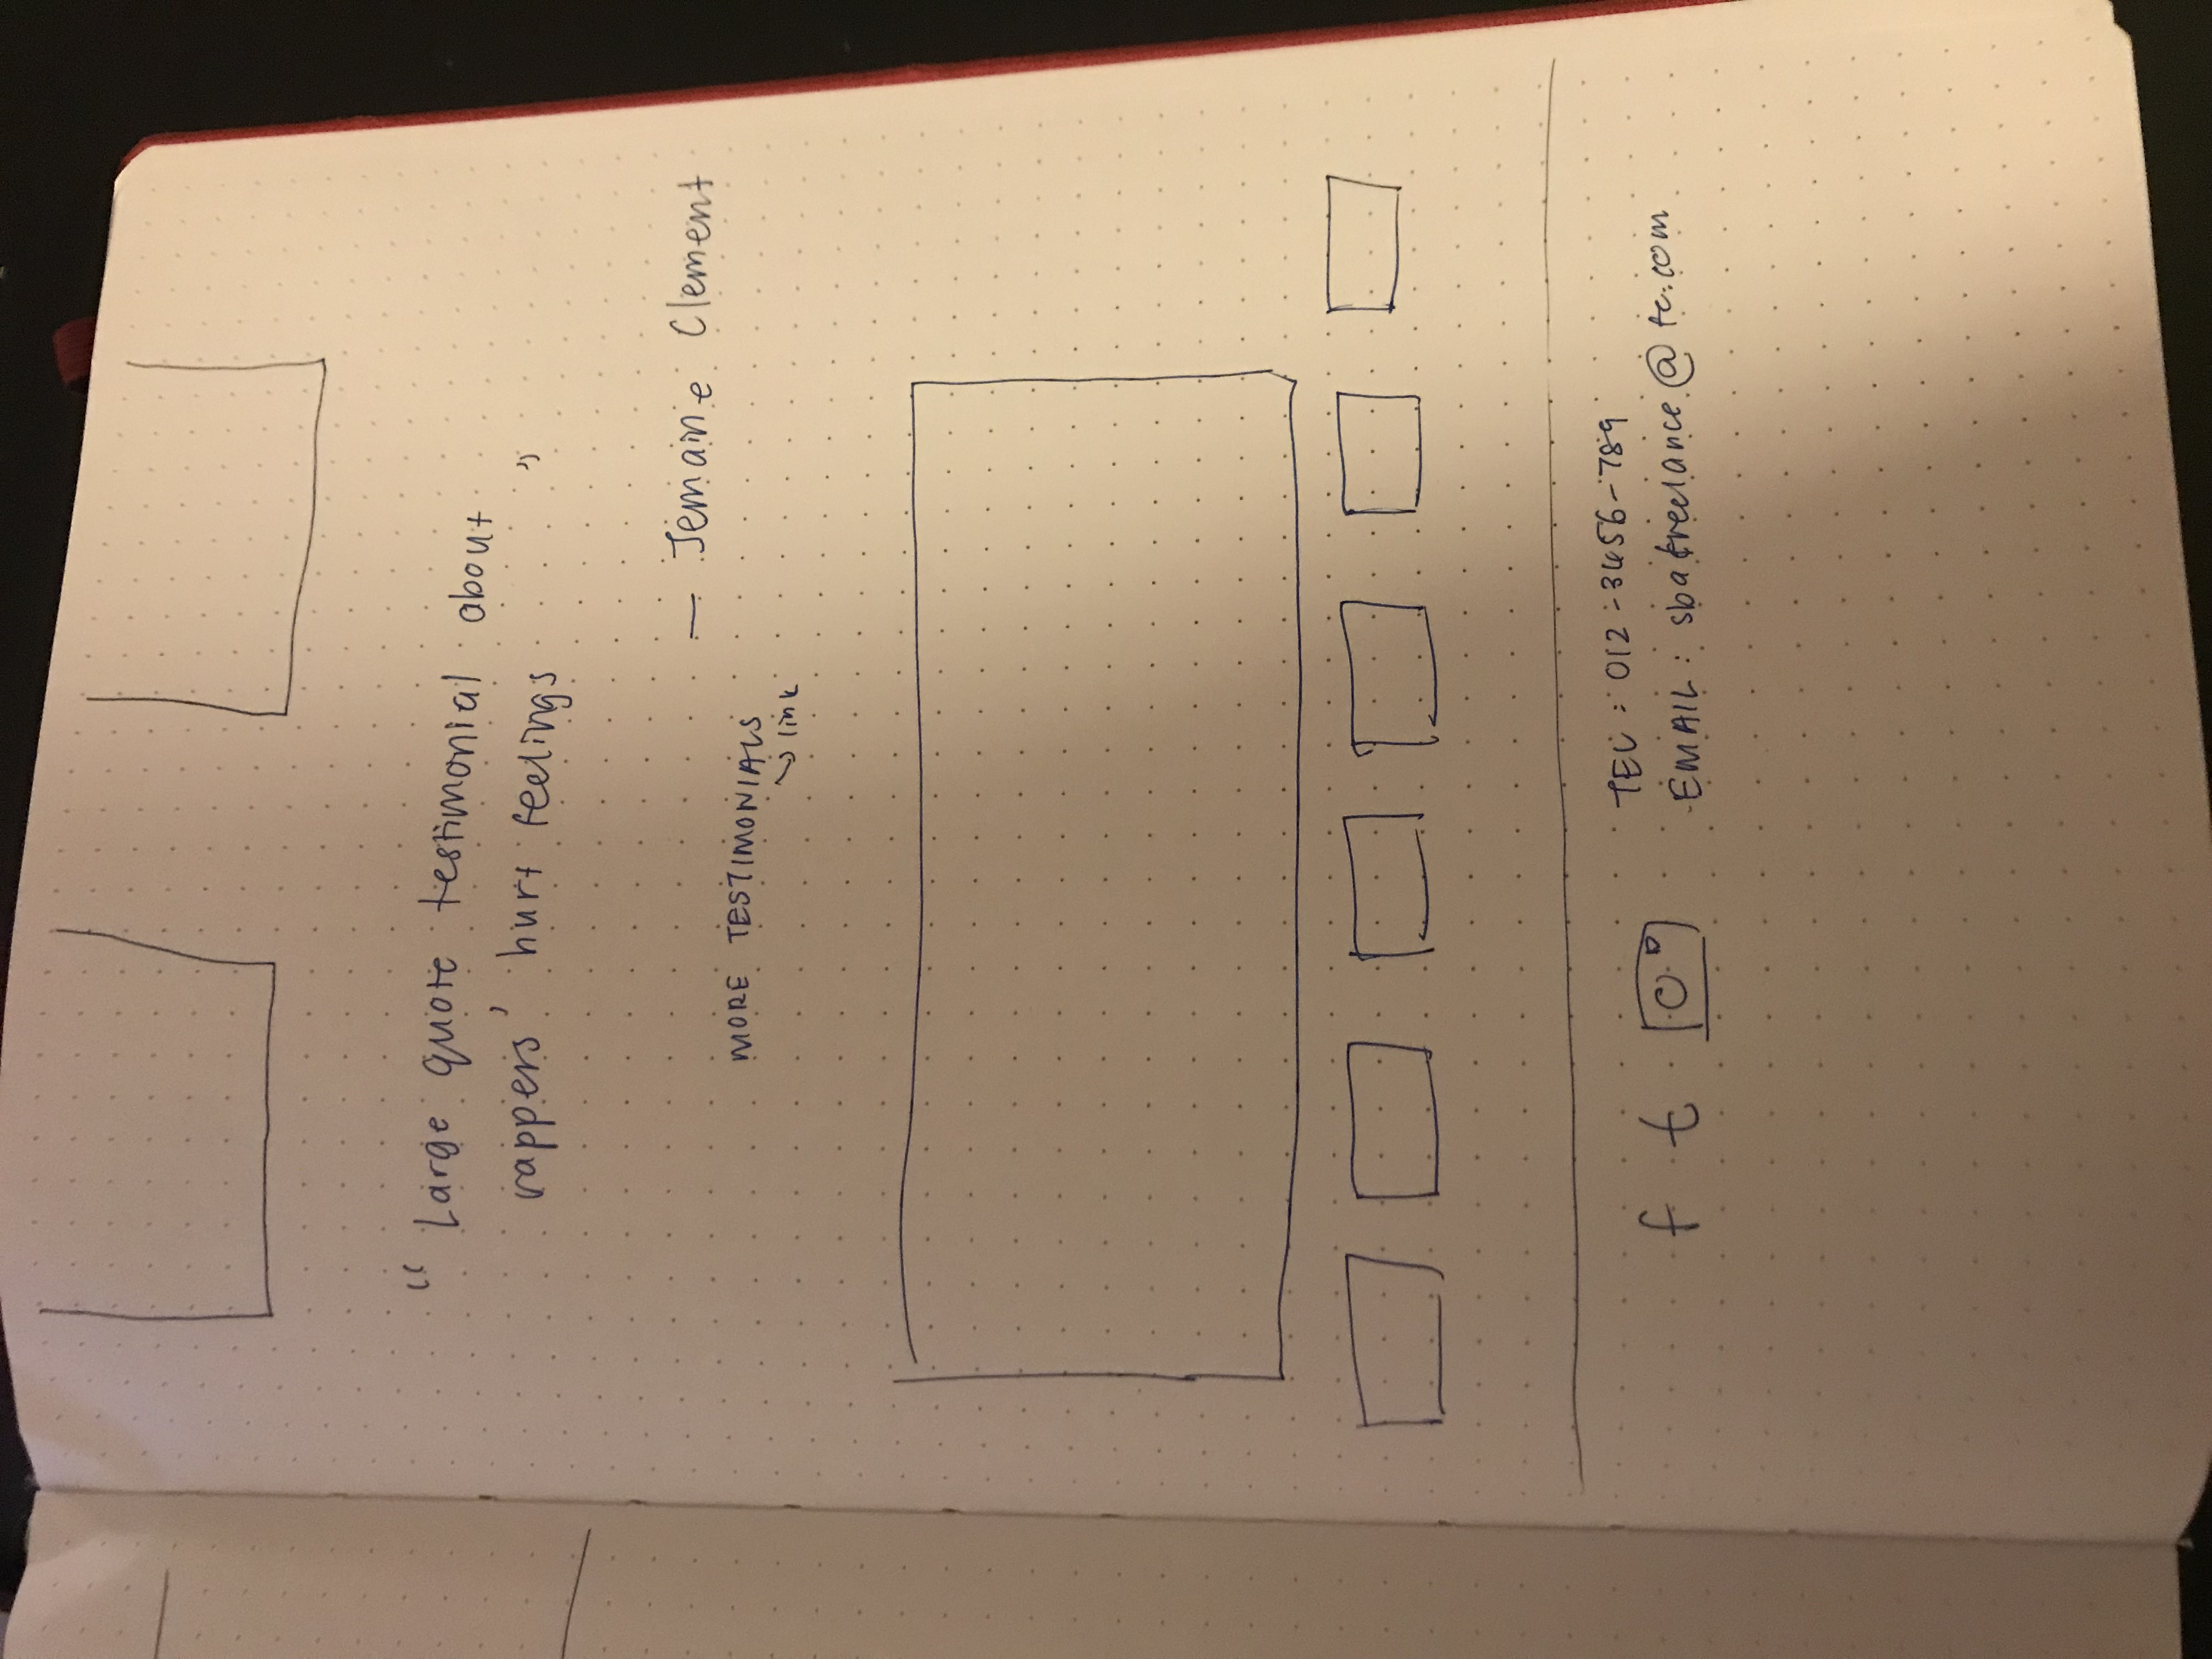 “ Large quote testimonial about
rappers' hurt feelings ”
— Jemaine Clement
MORE TESTIMONIALS
link
f t
TEL : 012-3456-789
EMAIL : sbafreelance@tc.com